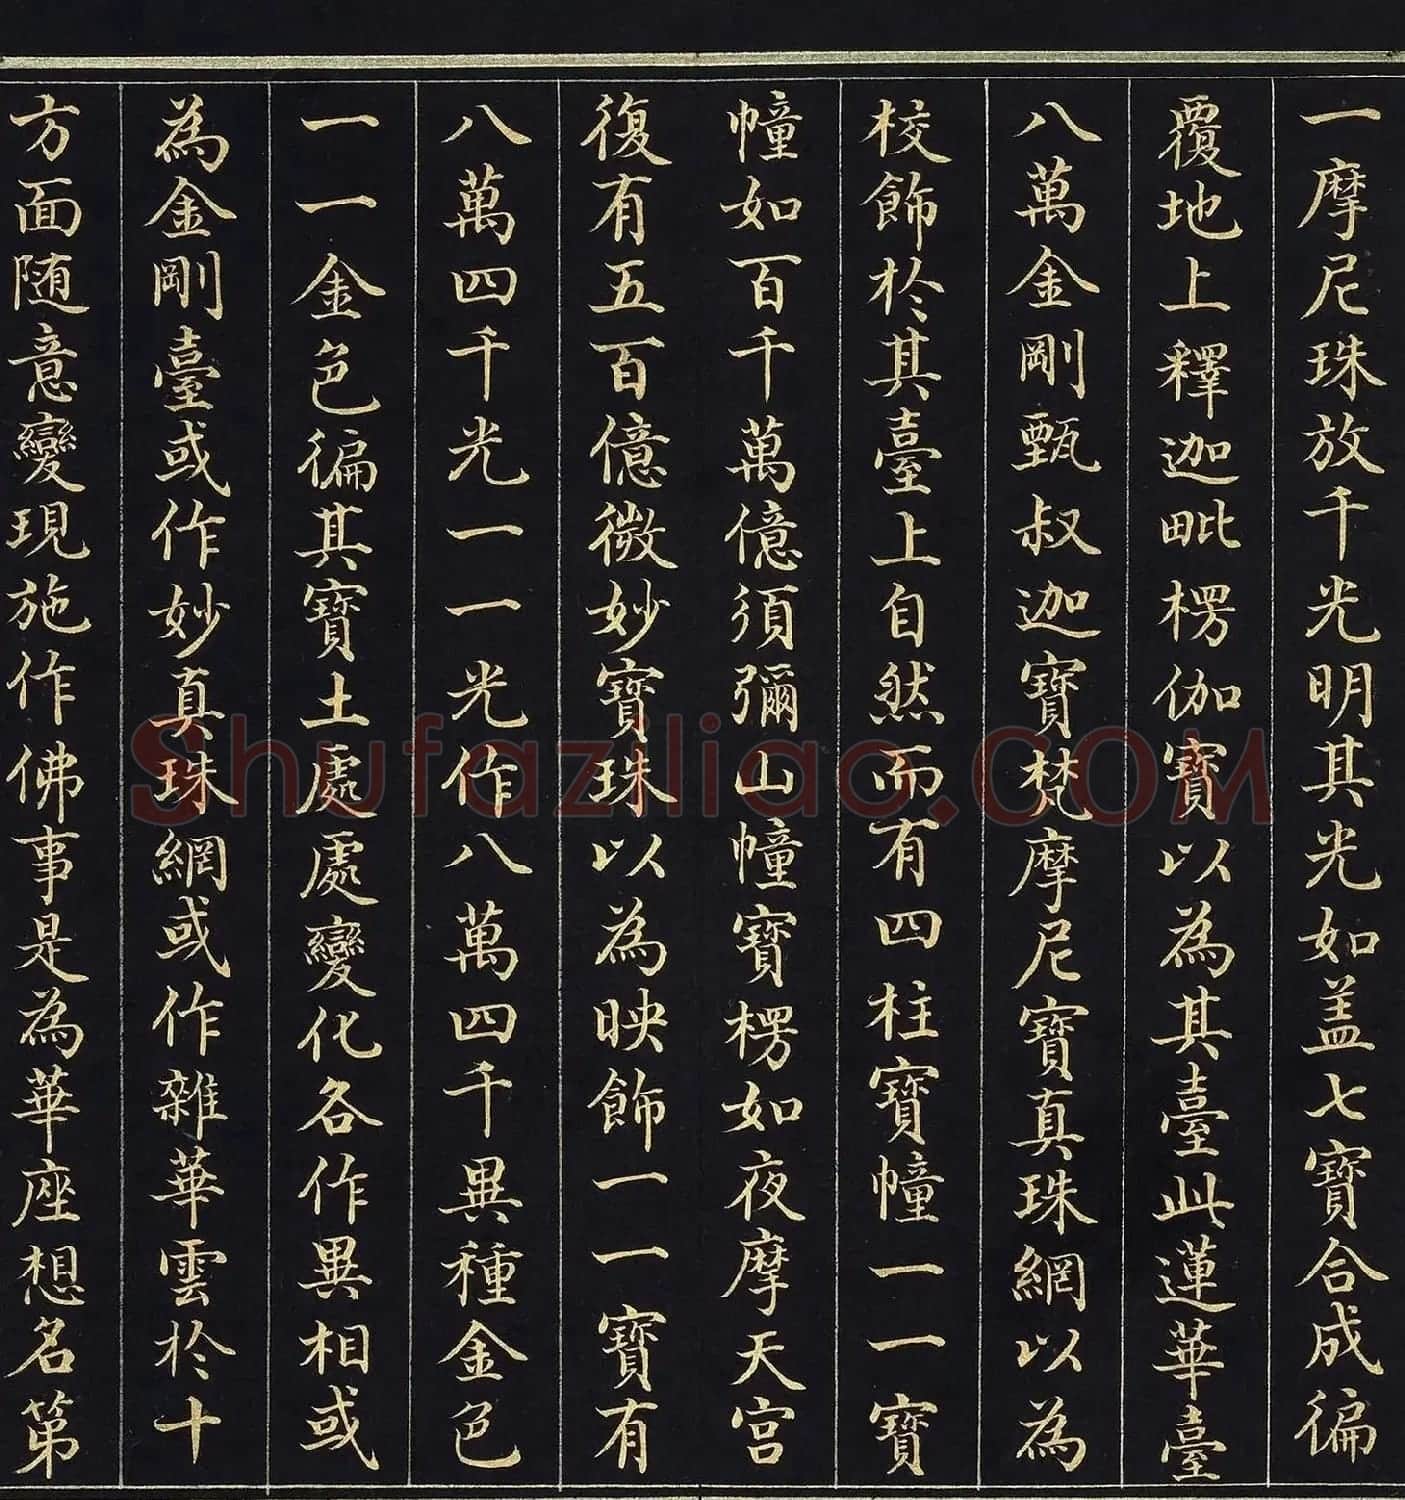 一摩尼珠放千光明其光如盖七寶合成徧
覆地上釋迦毗楞伽寶以為其臺此蓮華臺
八萬金剛甄叔迦寶梵摩尼寶真珠網以為
校飾於其臺上自然而有四柱寶幢一一寶
幢如百千萬億須彌山幢寶楞如夜摩天宮
復有五百億微妙寶珠以為映飾一一寶有
八萬四千光一一光作八萬四千異種金色
一一金色徧其寶土處處變化各作異相或
為金剛臺或作妙真珠網或作雜華雲於十
方面随意變現施作佛事是為華座想名第
Shufaziliao.COM